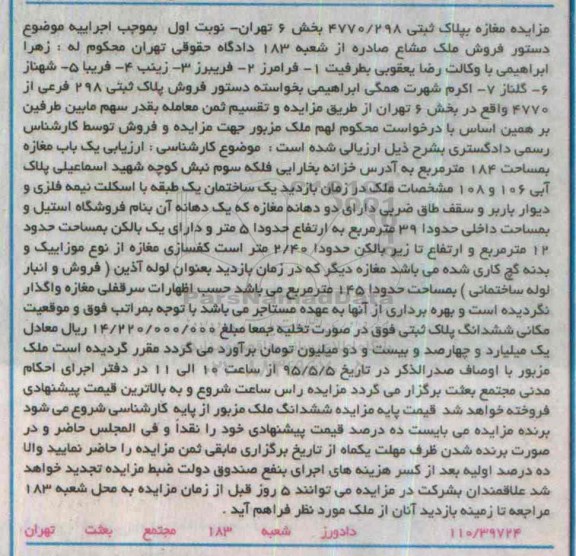 مزایده مغازه بپلاک ثبتی ۴۷۷۰/۲۹۸ بخش ۶ تهران- نوبت اول بموجب اجراییه موضوع
دستور فروش ملک مشاع صادره از شعبه ۱۸۳ دادگاه حقوقی تهران محکوم له : زهرا
ابراهیمی با وکالت رضا یعقوبی بطرفیت ۱- فرامرز ۲- فریبرز ۳- زینب ۴- فریبا ۵- شهناز
۶- گلناز ۷- اکرم شهرت همگی ابراهیمی بخواسته دستور فروش پلاک ثبتی ۲۹۸ فرعی از
۴۷۷۰ واقع در بخش ۶ تهران از طریق مزایده و تقسیم ثمن معامله بقدر سهم مابین طرفین
بر همین اساس با درخواست محکوم لهم ملک مزبور جهت مزایده و فروش توسط کارشناس
رسمی دادگستری بشرح ذیل ارزیالی شده است : موضوع کارشناسی : ارزیابی یک باب مغازه
بمساحت ۱۸۴ مترمربع به آدرس خزانه بخارایی فلکه سوم نبش کوچه شهید اسماعیلی پلاک
آبی ۱۰۶ و ۱۰۸ مشخصات ملک در زمان بازدید یک ساختمان یک طبقه با اسکلت نیمه فلزی و
دیوار باربر و سقف طاق ضربی دارای دو دهانه مغازه که یک دهانه آن بنام فروشگاه استیل و
بمساحت داخلی حدودا ۳۹ مترمربع به ارتفاع حدودا ۵ متر و دارای یک بالکن بمساحت حدود
۱۲ مترمربع و ارتفاع تا زیر بالکن حدودا ۲/۴۰ متر است کفسازی مغازه از نوع موزاییک و
بدنه گچ کاری شده می باشد مغازه دیگر که در زمان بازدید بعنوان لوله آذین ( فروش و انبار
لوله ساختمانی ) بمساحت حدودا ۱۴۵ مترمربع می باشد حسب اظهارات سرقفلی مغازه واگذار
نگردیده است و بهره برداری از آنها به عهده مستاجر می باشد با توجه بمراتب فوق و موقعیت
مکانی ششدانگ پلاک ثبتی فوق در صورت تخلیه جمعا مبلغ ۱۴/۲۲۰/۰۰۰/۰۰۰ ریال معادل
یک میلیارد و چهارصد و بیست و دو میلیون تومان برآورد می گردد مقرر گردیده است ملک
مزبور با اوصاف صدرالذکر در تاریخ ۹۵/۵/۵ از ساعت ۱۰ الی ۱۱ در دفتر اجرای احکام
مدنی مجتمع بعثت برگزار می گردد مزایده راس ساعت شروع و به بالاترین قیمت پیشنهادی
فروخته خواهد شد قیمت پایه مزایده ششدانگ ملک مزبور از پایه کارشناسی شروع می شود
برنده مزایده می بایست ده درصد قیمت پیشنهادی خود را نقداً و فی المجلس حاضر و در
صورت برنده شدن ظرف مهلت یکماه از تاریخ برگزاری مابقی ثمن مزایده را حاضر نمایید والا
ده درصد اولیه بعد از کسر هزینه های اجرای بنفع صندوق دولت ضبط مزایده تجدید خواهد
شد علاقمندان بشرکت در مزایده می توانند ۵ روز قبل از زمان مزایده به محل شعبه ۱۸۳
مراجعه تا زمینه بازدید آنان از ملک مورد نظر فراهم آید .
۱۱۰/۳۹۷۲۴ دادورز شعبه ۱۸۳ مجتمع بعثت تهران
ParsNamadData